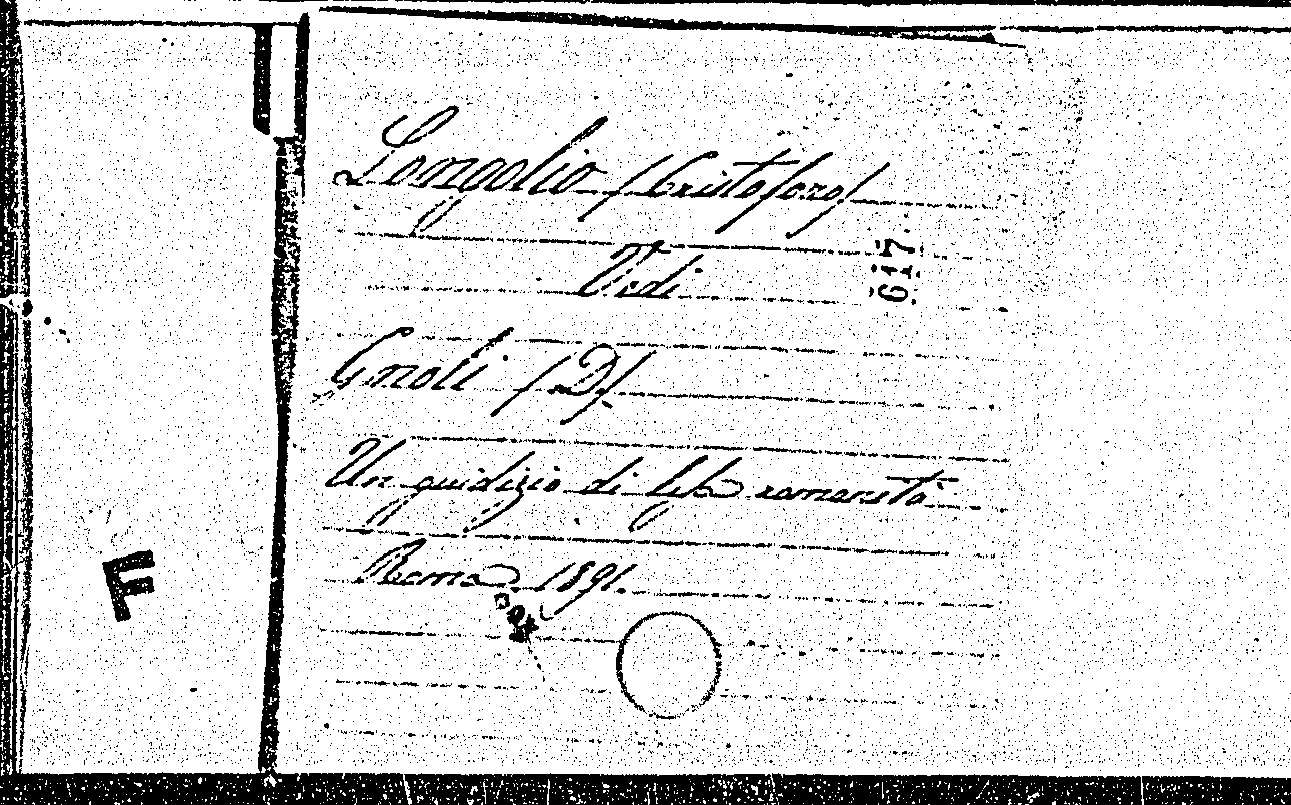 Longolio /Cristoforo/
617.
Vedi
Gnoli /D/.
Un giudizio di lesa romanità
Roma 1891.
F